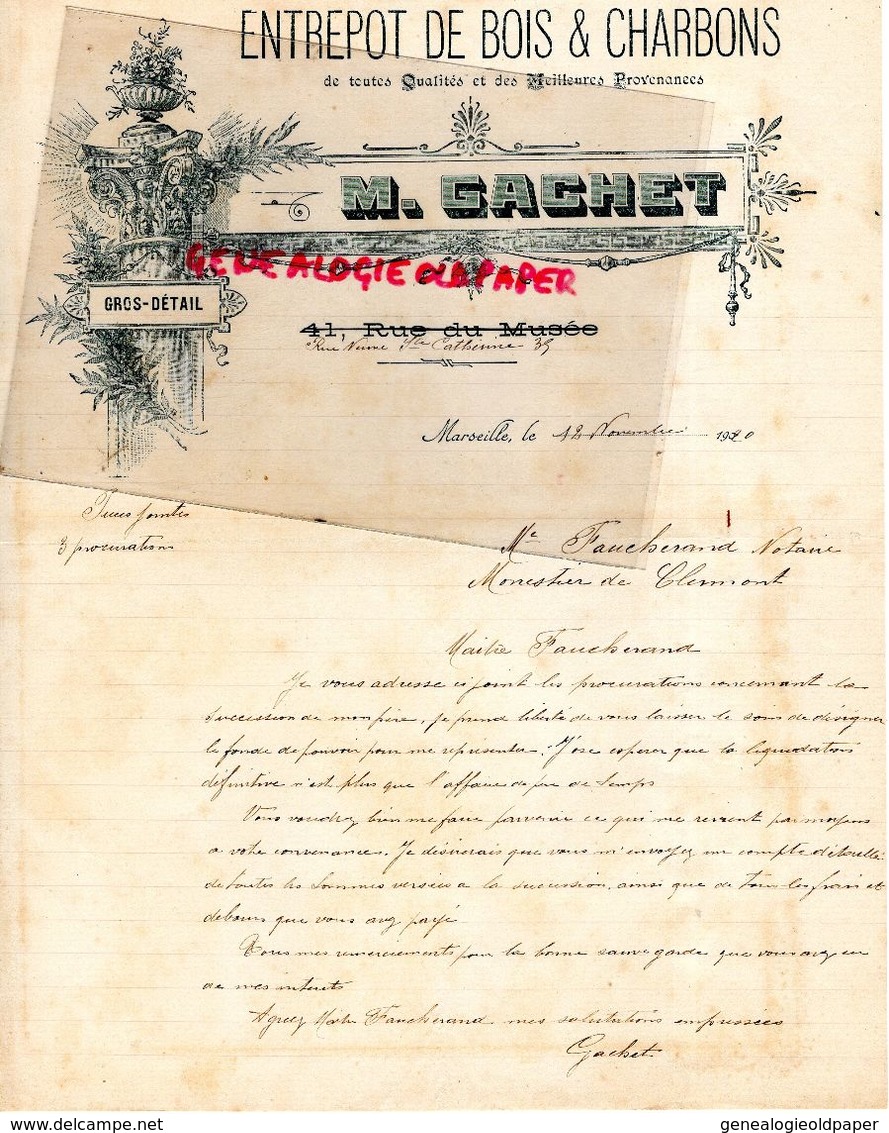 ENTREPOT DE BOIS & CHARBONS
de toutes Qualités et des Meilleures Provenances
M. GACHET
GENEALOGIE OLDPAPER
GROS-DÉTAIL
41, Rue du Musée
Rue Neuve Ste Catherine 39
Marseille, le 12 Novembre 1920
3 procurations
Me Faucherand Notaire
Monestier de Clermont
Maitre Faucherand
Je vous adresse ci joint les procurations concernant la
succession de mon père, je prend liberté de vous laisser le soin de désigner
le fondé de pouvoir pour me représenter. J'ose esperer que la liquidation
définitive n'est plus que l'affaire de peu de temps
Vous voudrez bien me faire parvenir ce qui me revient par moyens
a votre convenances. Je désirerais que vous m'envoyez un compte détaillé
de toutes les sommes versées a la succession, ainsi que de tous les frais et
debours que vous avez payé
Tous mes remerciements pour la bonne sauvegarde que vous avez eu
de mes interets
Agreez Maitre Faucherand mes salutations empressées
Gachet
www.delcampe.net
genealogieoldpaper